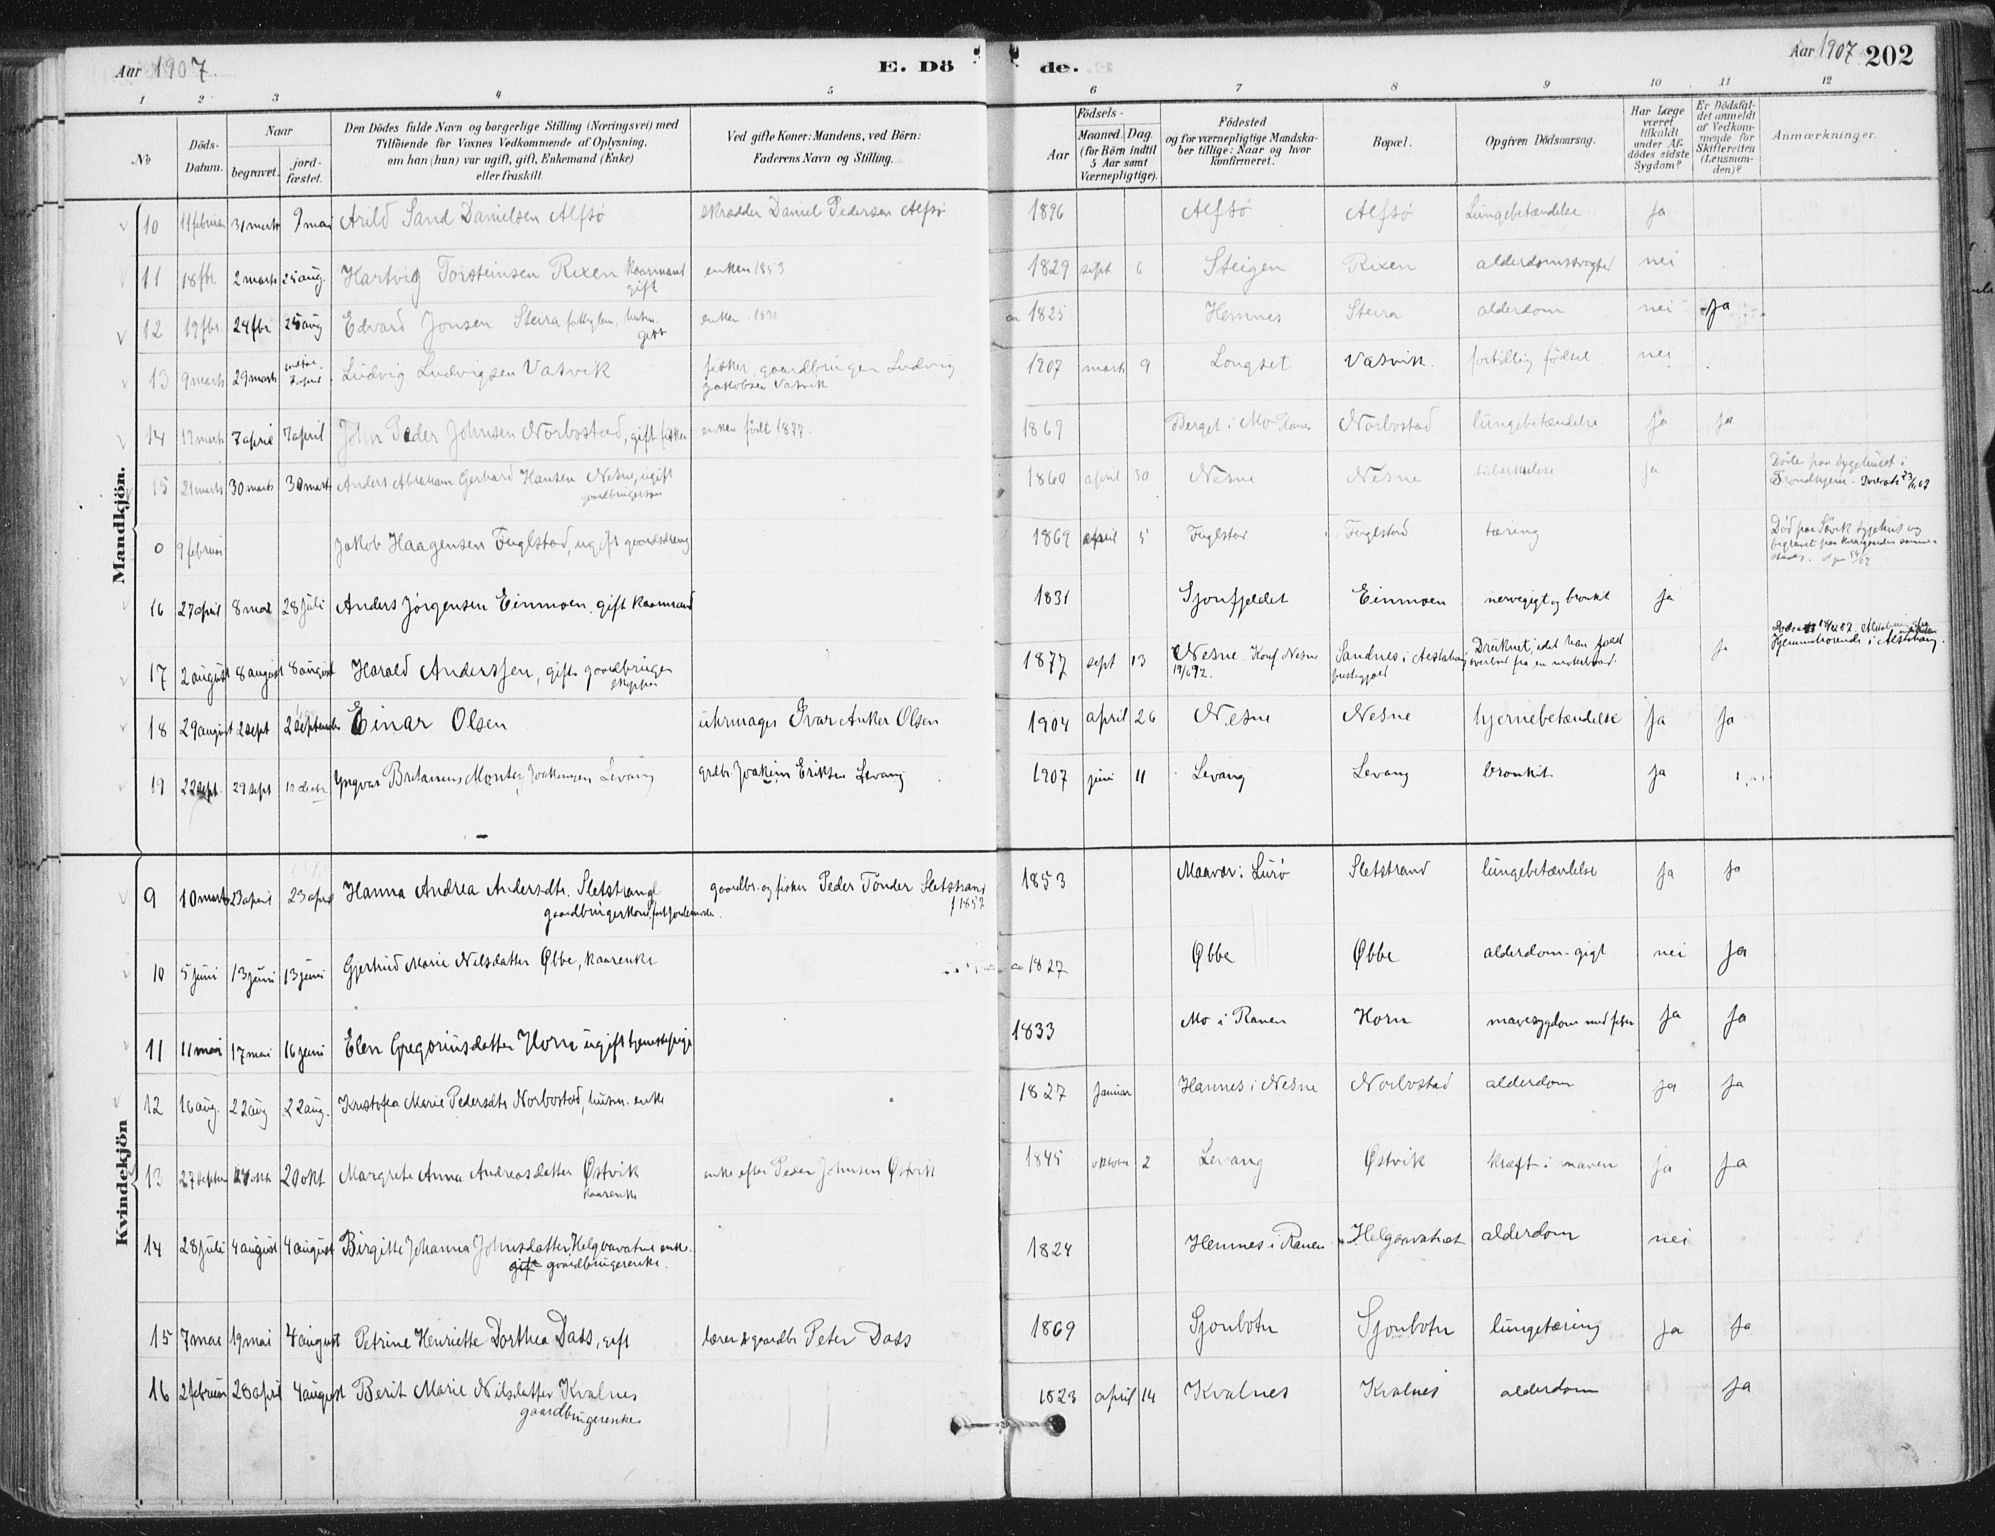 Aar 1907. E. Dö de. Aar 1907 202
1 2 3 4 5 6 7 8 9 10 11 12
№ Döds-Datum. Naar begravet. jordfæstet. Den Dödes fulde Navn og borgerlige Stilling (Næringsvei) med Tilföiende for Voxnes Vedkommende af Oplysning, om han (hun) var ugift, gift, Enkemand (Enke) eller fraskilt. Ved gifte Koner: Mandens, ved Börn: Faderens Navn og Stilling. Födsels- Aar Maaned. Dag. (for Börn indtil 5 Aar samt Værnepligtige). Födested og for værnepligtige Mandskaber tillige: Naar og hvor konfirmeret. Bopæl. Opgiven Dödsaarsag. Har Læge været tilkaldt under Afdödes sidste Sygdom? Er Dödsfaldet anmeldt af Vedkommende for Skifteretten (Lensmanden)? Anmærkninger.
Mandkjön.
10 11 februar 31 marts 9 mai Arild Sand Danielsen Alfsö skrædder Daniel Pedersen Alfsö 1896 Alfsö Alfsö Lungebetændelse ja
11 18 fbr 2 marts 25 aug. Hartvig Torsteinsen Rixen kaarmand gift enken 1853 1829 sept 6 Steigen Rixen nei
12 19 fbr. 24 fbr. 25 aug Edvard Jonsen Steira husm. gift enken ca 1825 Hemnes Steira alderdom nei ja
13 9 marts 29 marts Ludvig Ludvigsen Vasvik fisker, gaardbruger Ludvig Jakobsen Vasvik 1907 marts 9 Longset Vasvik. fortidlig födsel nei
14 19 marts 7 april 7 april John Peder Johnsen Norbostad, gift fisker enken födt 1877. 1869 Berget i Mo Ranen Norbostad lungebetændelse ja ja
15 21 marts 30 marts 30 marts Anders Abraham Gerhard Hansen Nesne, ugift gaardbrugersön 1860 april 30 Nesne Nesne tuberkulose ja Döde paa sygehuset i Trondhjem.
0 9 februar Jakob Haagensen Fuglstad, ugift gaardsdreng 1869 april 5 Fuglstad Fuglstad tæring Död paa Sövik sygehus og begravet paa kirkegaarden sammesteds.
16 27 april 8 mai 28 juli Anders Jörgensen Einmoen. gift kaarmand 1831 Sjonfjeldet Einmoen nervegigt og bronkit ja
17 2 august 8 august 8 august Harald Anderssen, gift gaardbruger skipper 1877 sept 13 Nesne Konf Nesne 19/6 92. Sandnes i Alstahaug prestegjeld Druknet, idet han faldt overbord fra en motorbaad. ja Hjemmehörende i Alstahaug.
18 29 august 2 sept 2 september Einar Olsen uhrmager Ivar Anker Olsen 1904 april 26 Nesne Nesne hjernebetændelse ja ja
19 22 sept. 29 sept Yngvar Joakimsen Levang grdbr. Joakim Eriksen Levang 1907 juni 11 Levang Levang bronkit ja
Kvindekjön
9 10 marts 23 april 23 april Hanna Andrea Andersdtr. Sletstrand gaardbrugerkone, gaardbr. og fisker Peder Tönder Sletstrand f 1857 1853 Maavær i Lurö Sletstrand lungebetændelse ja ja
10 5 juni 13 juni 13 juni Gjertrud Marie Nilsdatter Øbbe, kaarenke ca 1827 Øbbe Øbbe alderdom-gigt nei ja
11 11 mai 17 mai 16 juni Elen Gregoriusdatter Horn ugift tjenestepige 1833 Mo i Ranen Horn mavesygdom med feber ja ja
12 16 aug. 22 aug 22 aug. Kristofa Marie Pedersdtr Norbostad, husm. enke 1827 Januar Hannes i Nesne Norbostad alderdom ja ja
13 27 septbr 20 okt Margrete Anna Andreasdatter Østvik kaarenke enke efter Peder Johnsen Østvik 1845 oktober 2 Levang Østvik kræft i maven ja ja
14 28 juli 4 august 4 august Birgitte Johanna Johnsdatter, Helgaavatnet enke. gift gaardbrugerenke. 1824 Hemnes i Ranen Helgaavatnet alderdom nei
15 7 mai 19 mai 4 august Petrine Henriette Dorthea Dass, gift lærer & gaardbr Peter Dass 1869 Sjonbotn Sjonbotn lungetæring ja ja
16 2 februar 28 april 4 august Berit Marie Nilsdatter Kvalnes gaardbrugerenke 1823 april 14 Kvalnes Kvalnes alderdom ja